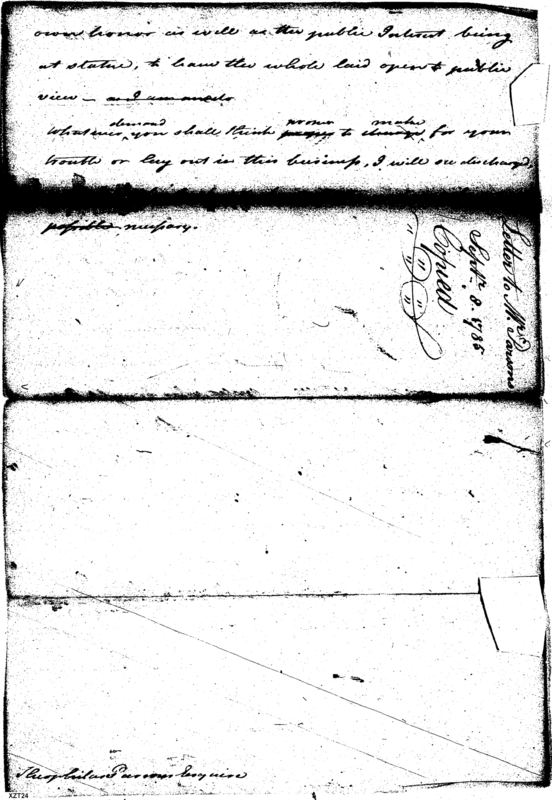 own honor as well as the public Interest being
at stake, to have the whole laid open to public
view – as I am
demand proper make
Whatever you shall think to charge for your
trouble or lay out in this business, I will see discharged,
possible necessary.
Letter to Mr. Parsons
Septr. 8. 1785
Copied
Theophilus Parsons Esquire
XZT24